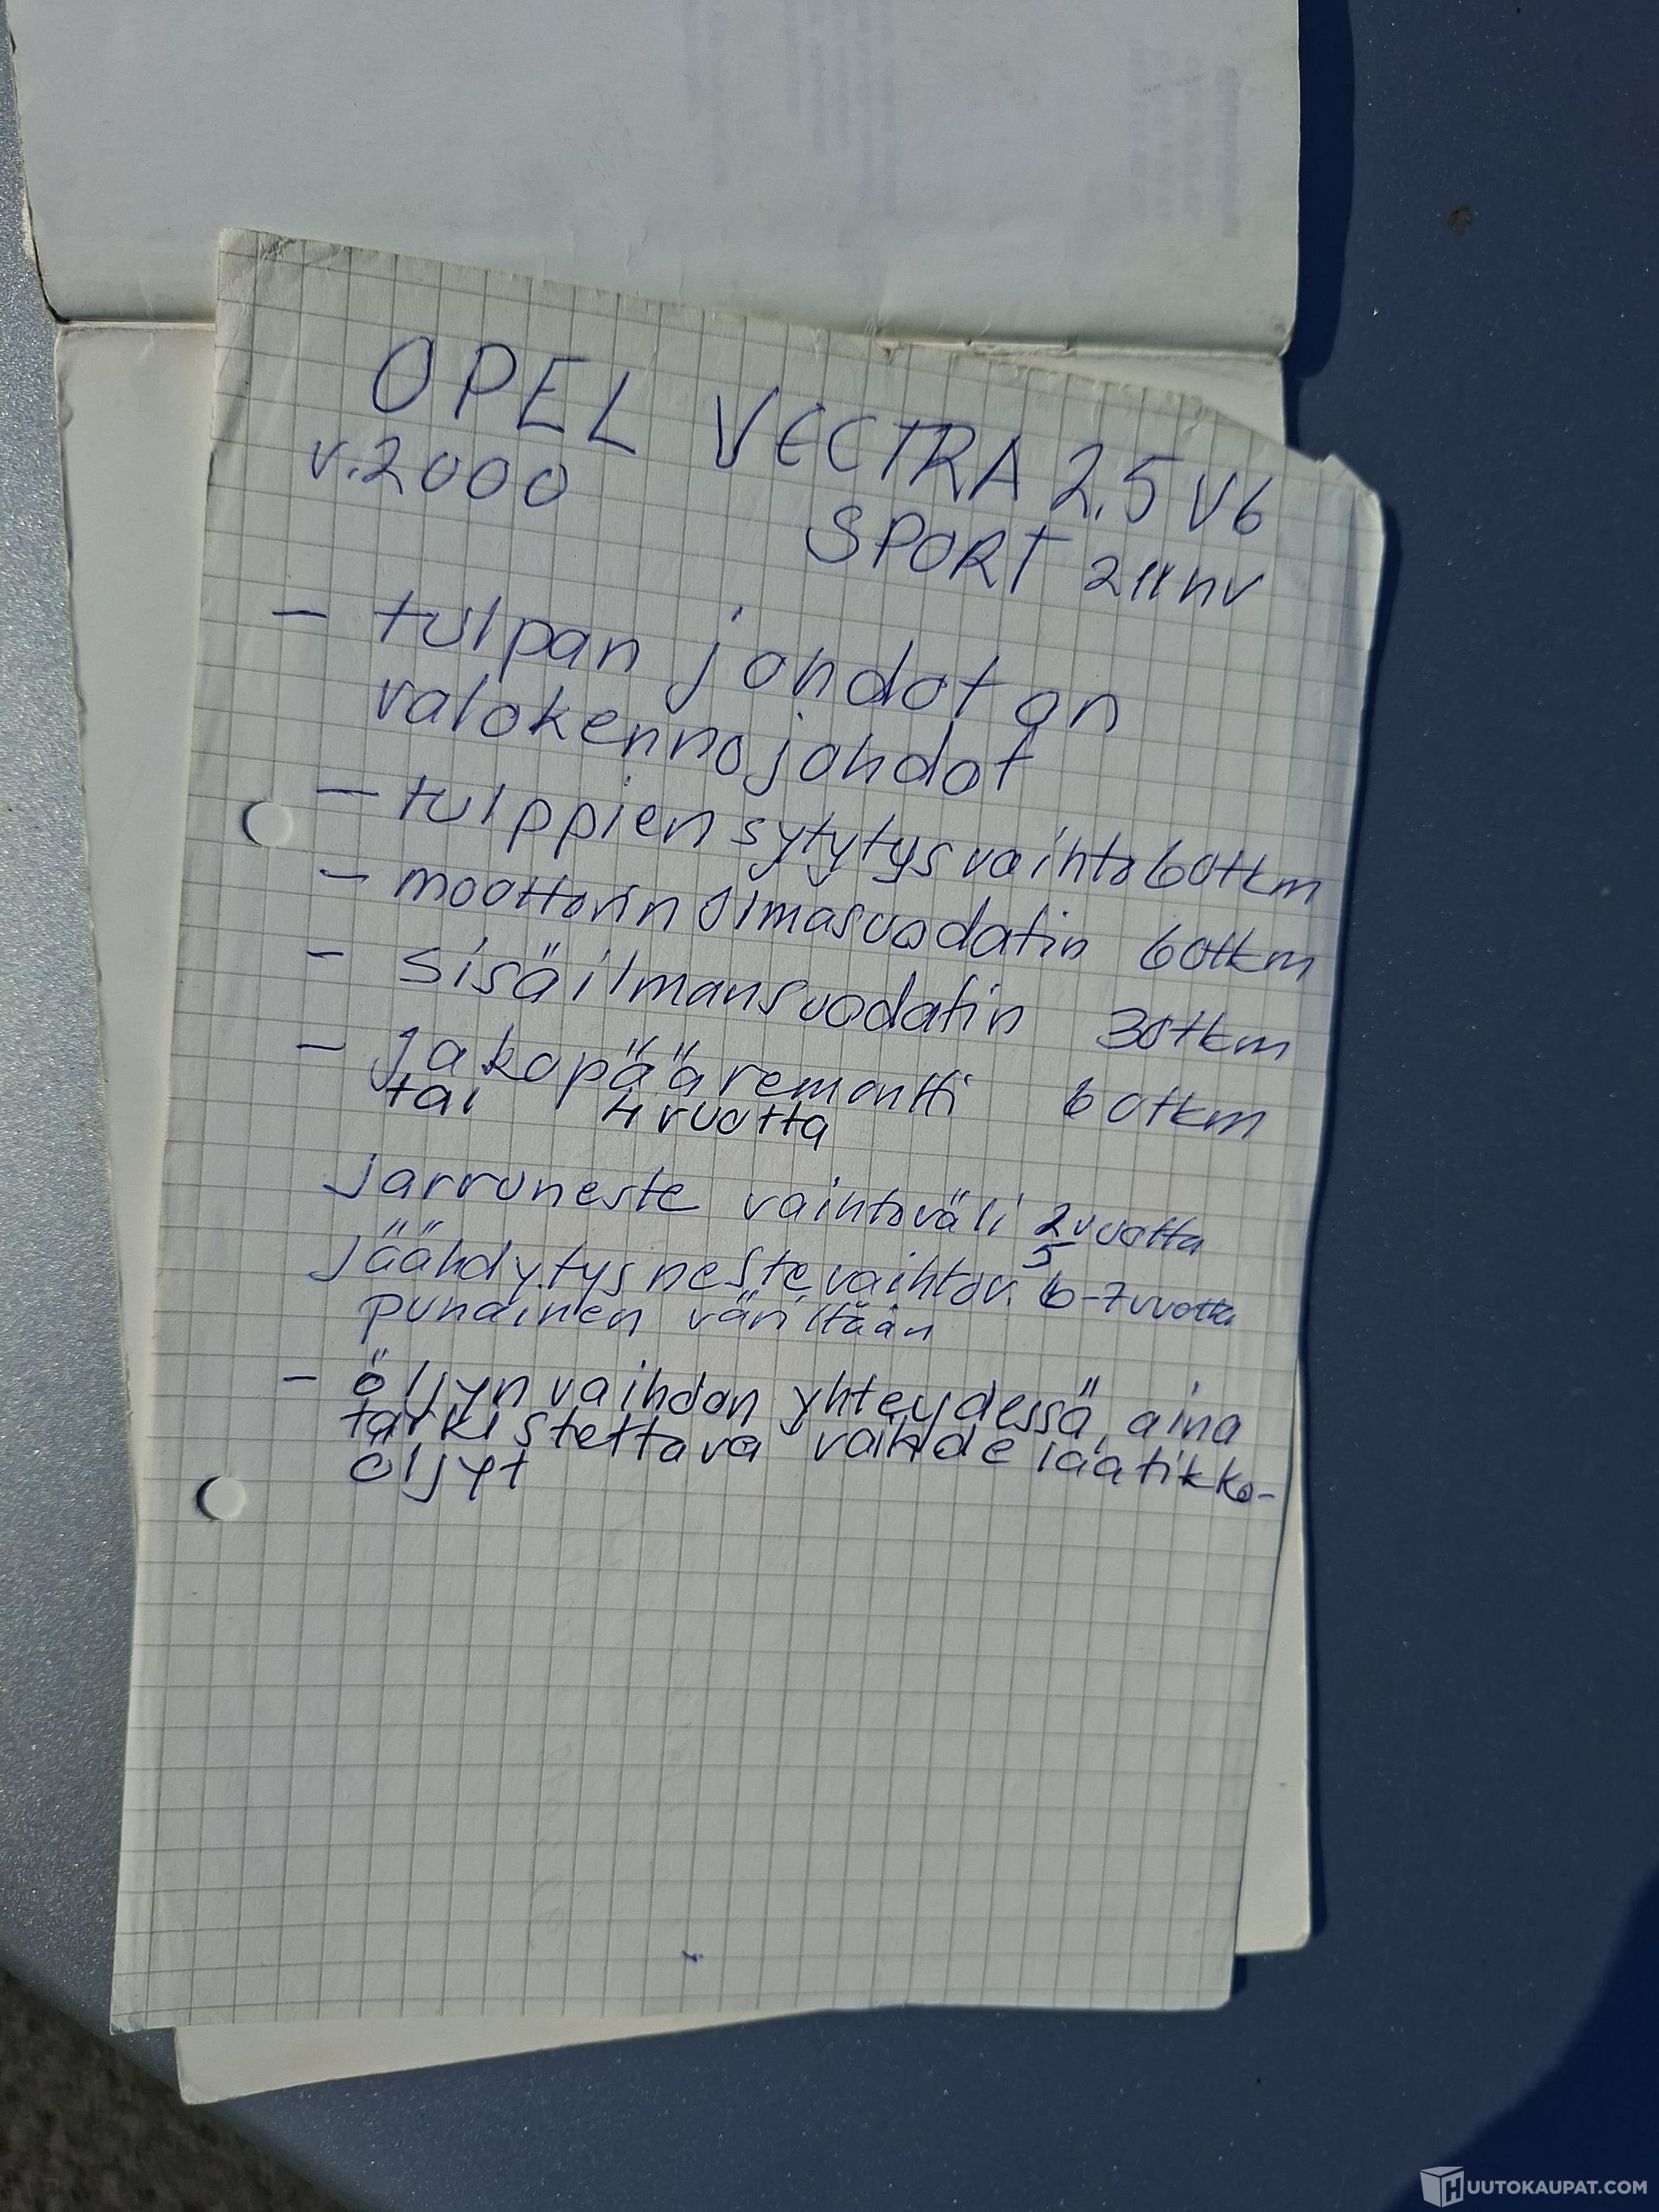 OPEL VECTRA 2.5 V6
v.2000 SPORT 211nv
- tulpan johdot on
valokennojohdot
- tulppien sytytysvaihto 60tkm
- moottorin ilmasuodatin 60tkm
- sisäilmansuodatin 30tkm
- jakopääremontti 60tkm
tai 4 vuotta
jarruneste vaihtoväli 2 vuotta
5
jäähdytysneste vaihtov. 6-7 vuotta
punainen väriltään
- öljyn vaihdon yhteydessä aina
tarkistettava vaihdelaatikko-
öljyt
HUUTOKAUPAT.COM